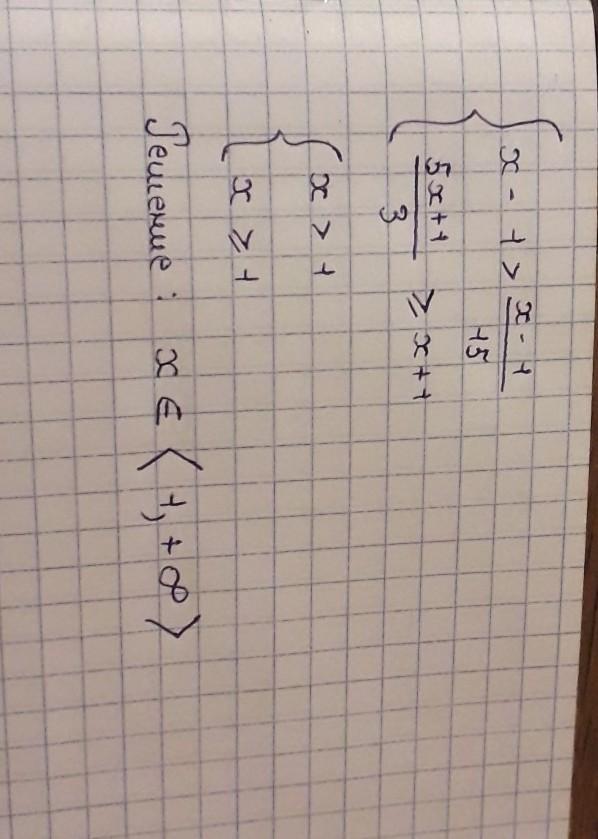 x - 1 > x - 1 / 15
5x + 1 / 3 ⩾ x + 1
x > 1
x ⩾ 1
Решение: x ∈ ⟨1, +∞⟩